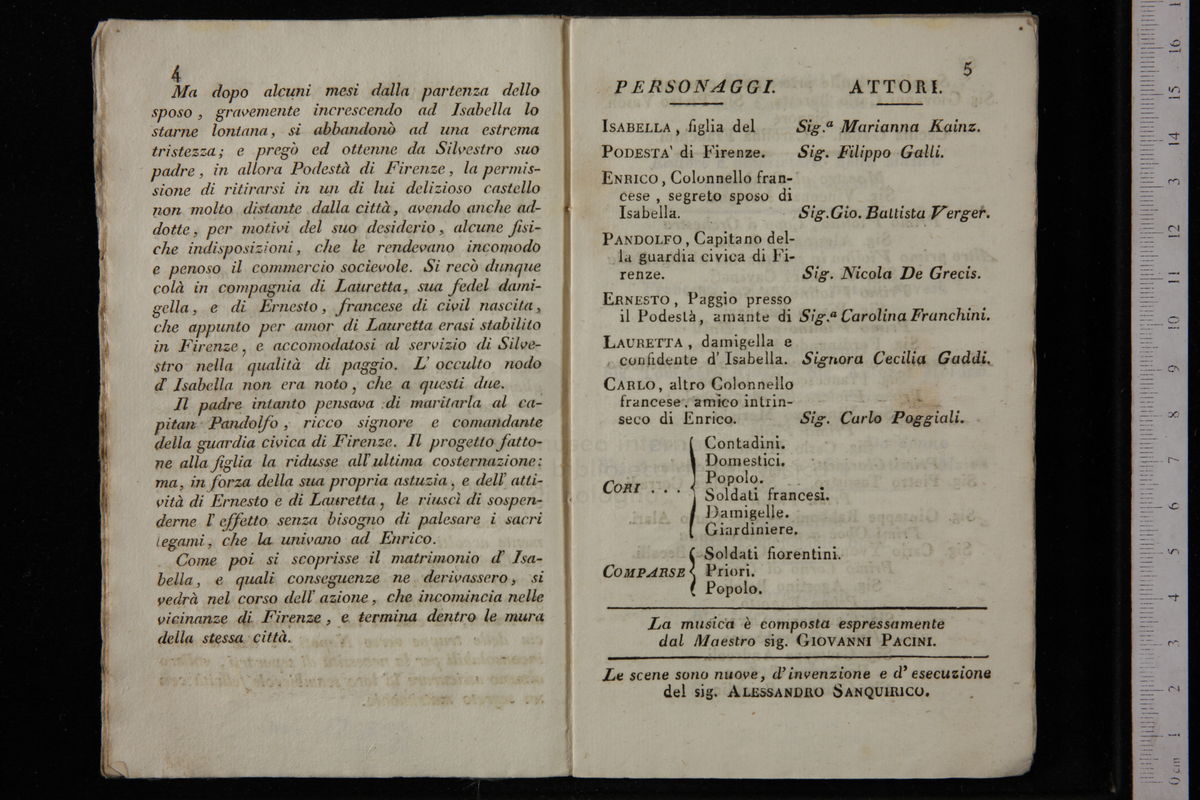 4
Ma dopo alcuni mesi dalla partenza dello
sposo, gravemente increscendo ad Isabella lo
starne lontana, si abbandonò ad una estrema
tristezza; e pregò ed ottenne da Silvestro suo
padre, in allora Podestà di Firenze, la permis-
sione di ritirarsi in un di lui delizioso castello
non molto distante dalla città, avendo anche ad-
dotte, per motivi del suo desiderio, alcune fisi-
che indisposizioni, che le rendevano incomodo
e penoso il commercio socievole. Si recò dunque
colà in compagnia di Lauretta, sua fedel dami-
gella, e di Ernesto, francese di civil nascita,
che appunto per amor di Lauretta erasi stabilito
in Firenze, e accomodatosi al servizio di Silve-
stro nella qualità di paggio. L' occulto nodo
d' Isabella non era noto, che a questi due.
Il padre intanto pensava di maritarla al ca-
pitan Pandolfo, ricco signore e comandante
della guardia civica di Firenze. Il progetto fatto-
ne alla figlia la ridusse all' ultima costernazione:
ma, in forza della sua propria astuzia, e dell' atti-
vità di Ernesto e di Lauretta, le riuscì di sospen-
derne l' effetto senza bisogno di palesare i sacri
legami, che la univano ad Enrico.
Come poi si scoprisse il matrimonio d' Isa-
bella, e quali conseguenze ne derivassero, si
vedrà nel corso dell' azione, che incomincia nelle
vicinanze di Firenze, e termina dentro le mura
della stessa città.
5
PERSONAGGI. ATTORI.
ISABELLA, figlia del Sig.a Marianna Kainz.
PODESTA' di Firenze. Sig. Filippo Galli.
ENRICO, Colonnello fran-
cese, segreto sposo di
Isabella. Sig. Gio. Battista Verger.
PANDOLFO, Capitano del-
la guardia civica di Fi-
renze. Sig. Nicola De Grecis.
ERNESTO, Paggio presso
il Podestà, amante di Sig.a Carolina Franchini.
LAURETTA, damigella e
confidente d' Isabella. Signora Cecilia Gaddi.
CARLO, altro Colonnello
francese, amico intrin-
seco di Enrico. Sig. Carlo Poggiali.
CORI . . .
Contadini.
Domestici.
Popolo.
Soldati francesi.
Damigelle.
Giardiniere.
COMPARSE
Soldati fiorentini.
Priori.
Popolo.
La musica è composta espressamente
dal Maestro sig. GIOVANNI PACINI.
Le scene sono nuove, d' invenzione e d' esecuzione
del sig. ALESSANDRO SANQUIRICO.
0 cm 1 2 3 4 5 6 7 8 9 10 11 12 13 14 15 16